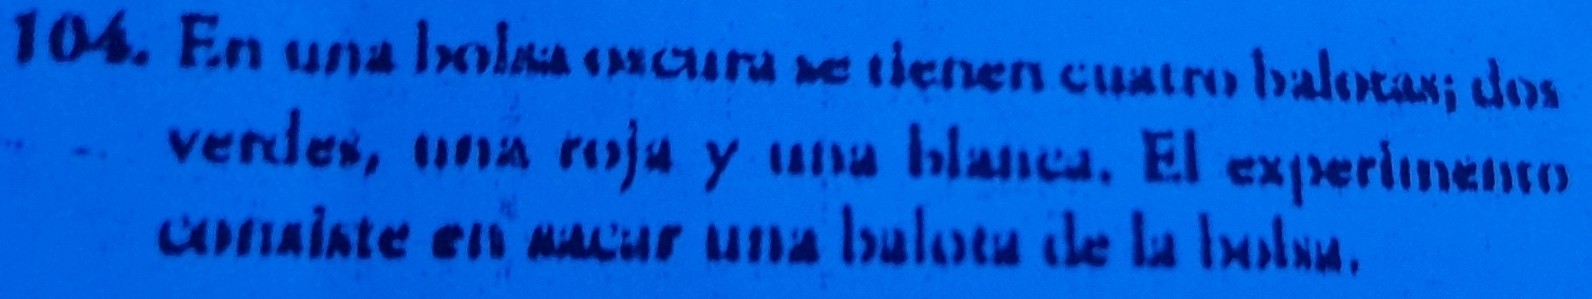 104. En una bolsa oscura se tienen cuatro balotas; dos
verdes, una roja y una blanca. El experimento
consiste en sacar una balota de la bolsa.